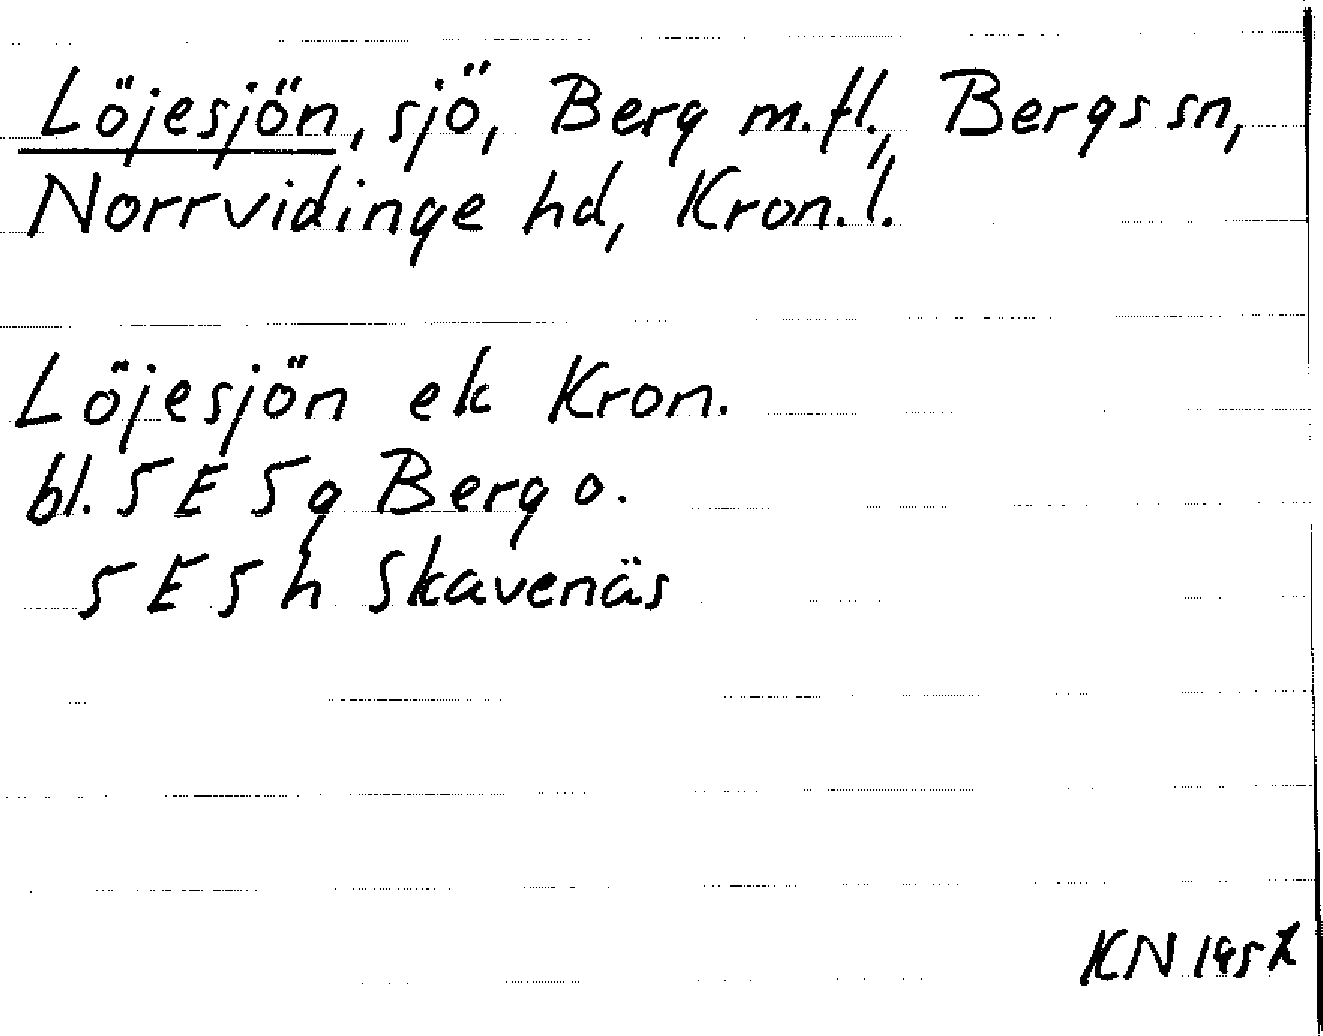 Löjesjön, sjö, Berg m.fl., Bergs sn,
Norrvidinge hd, Kron.l.
Löjesjön ek Kron.
bl. 5 E 5 g Berg o.
5 E 5 h Skavenäs
KN